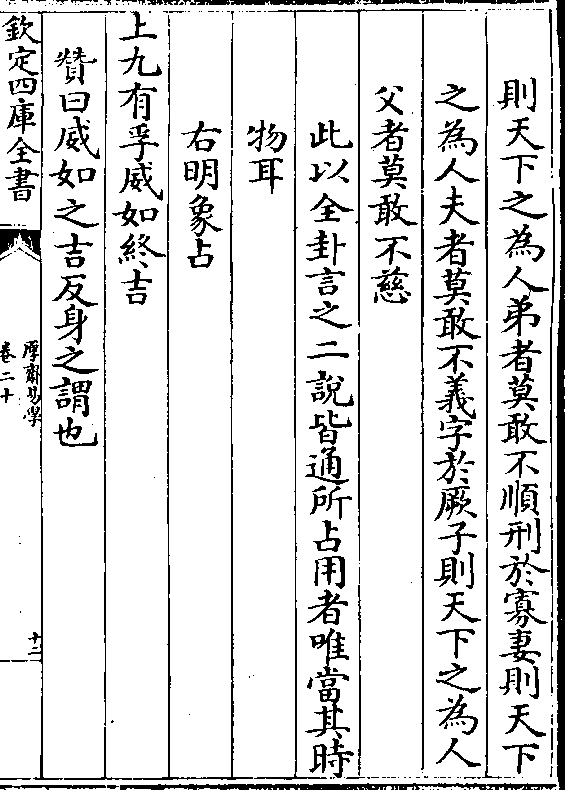 則天下之為人弟者莫敢不順刑於寡妻則天下
之為人夫者莫敢不義字於厥子則天下之為人
父者莫敢不慈
此以全卦言之二說皆通所占用者唯當其時
物耳
右明象占
上九有孚威如終吉
贊曰威如之吉反身之謂也
欽定四庫全書
厚齋易學
卷二十
十二